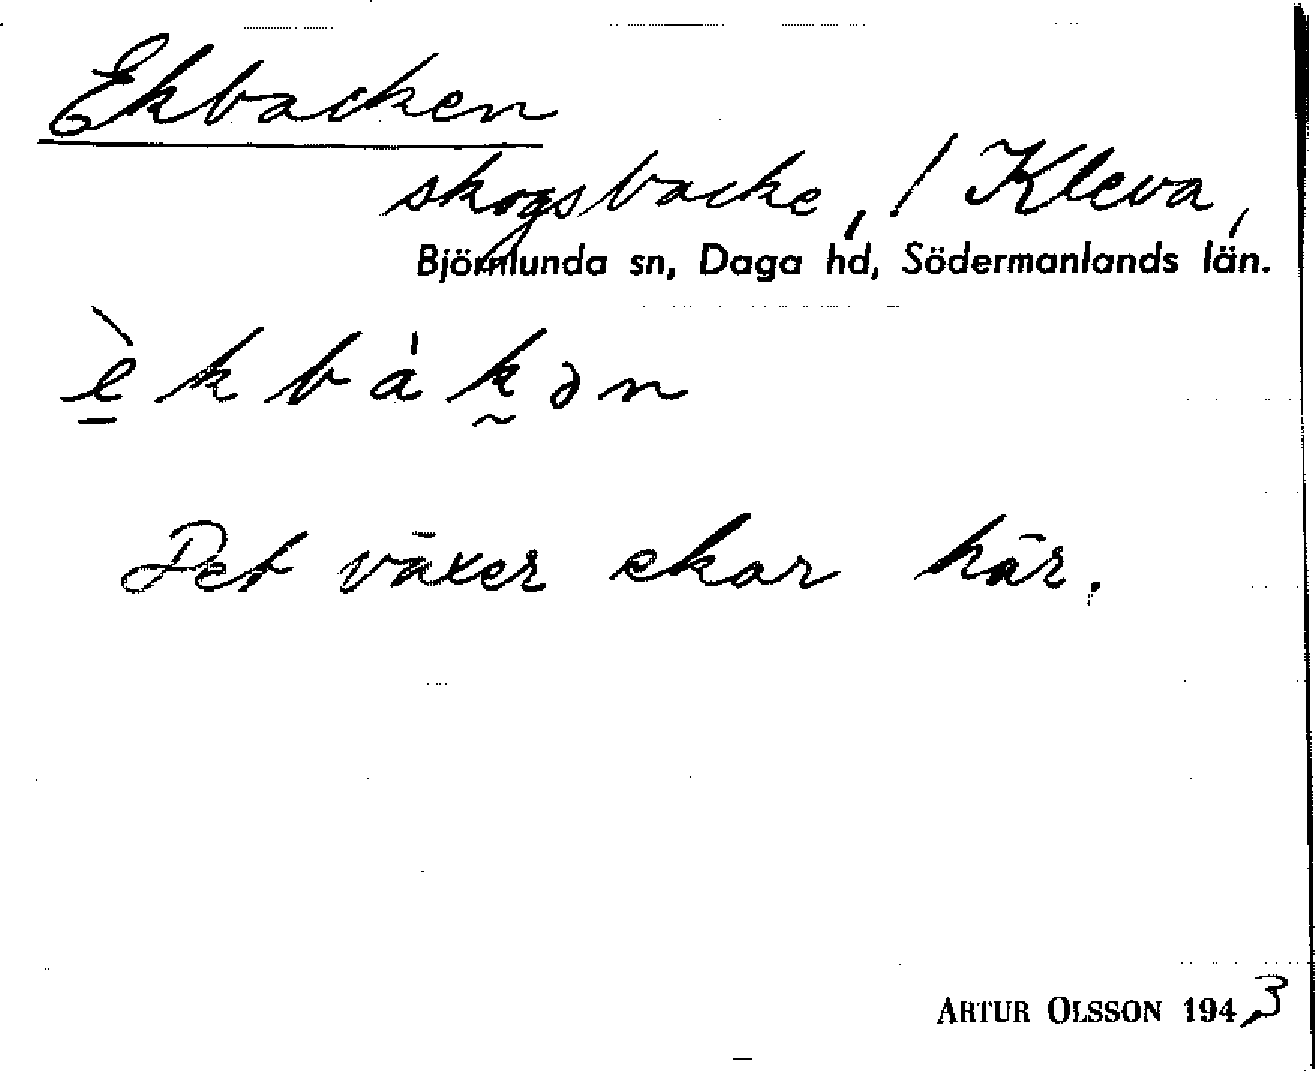 Ekbacken
skogsbacke, / Kleva,
Björnlunda sn, Daga hd, Södermanlands län.
è̱kbák̰ən
Det växer ekar här.
ARTUR OLSSON 1943